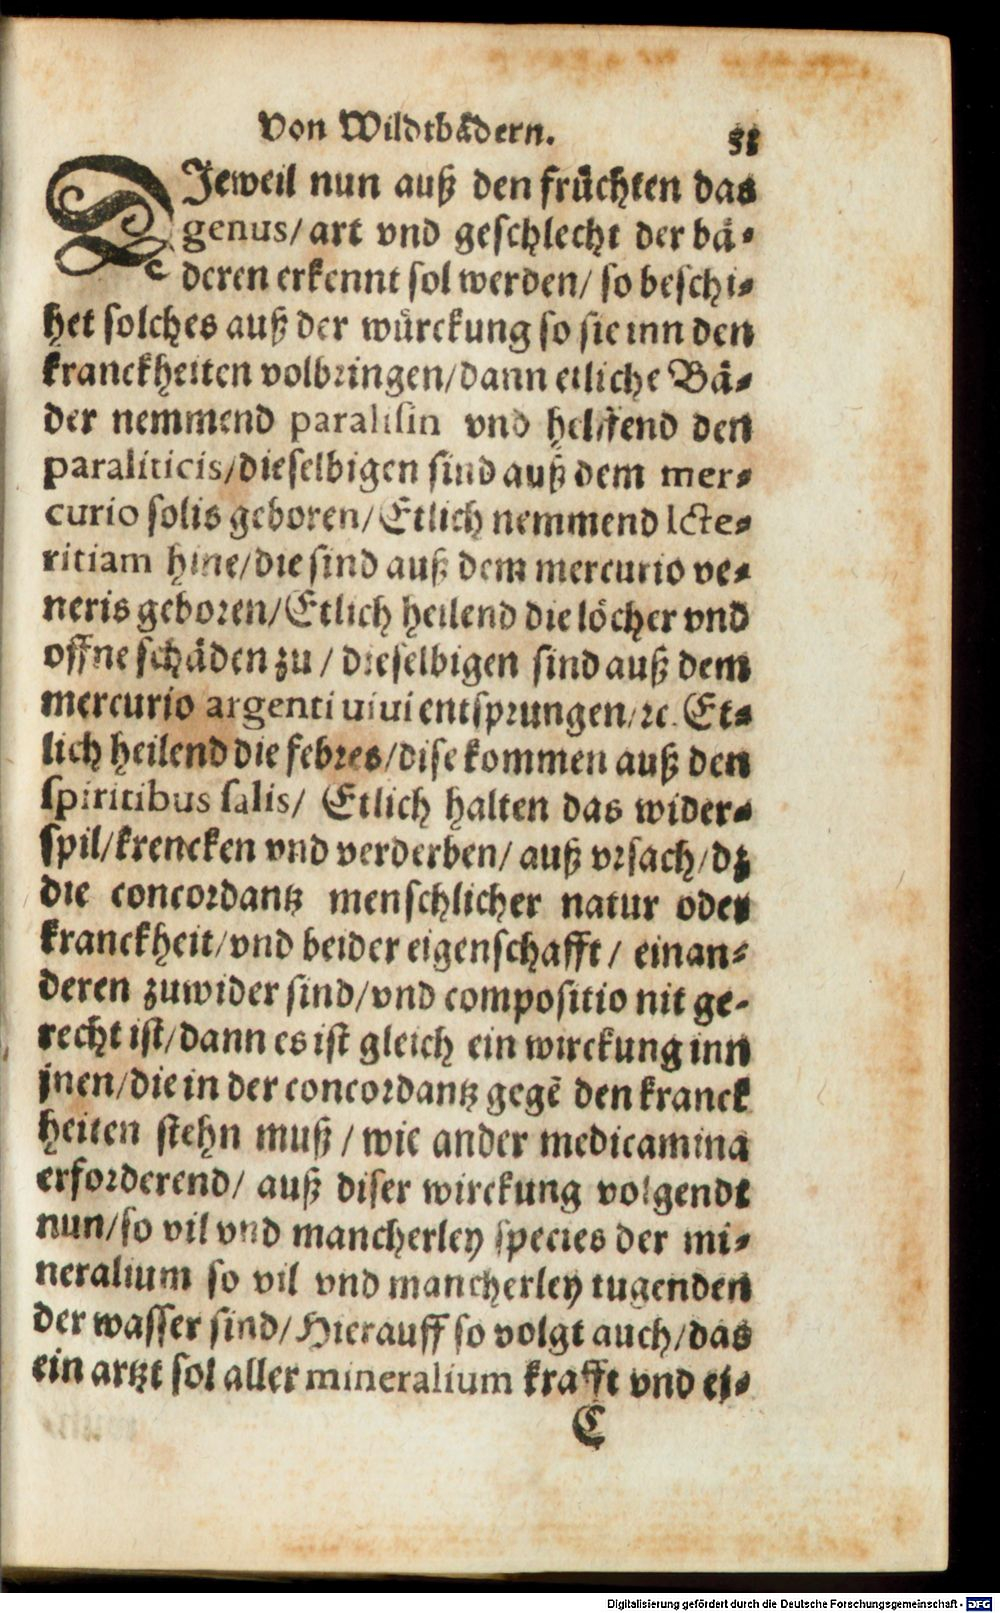 Von Wildtbådern.
33
DJeweil nun auß den frůchten das
genus/ art vnd geschlecht der bå⸗
deren erkennt sol werden/ so beschi⸗
het solches auß der wůrckung so sie inn den
kranckheiten volbringen/dann etliche Bå⸗
der nemmend paralisin vnd helffend den
paraliticis/dieselbigen sind auß dem mer⸗
curio solis geboren/Etlich nemmend Icte⸗
ritiam hine/die sind auß dem mercurio ve⸗
neris geboren/Etlich heilend die lo̊cher vnd
offne schåden zu / dieselbigen sind auß dem
mercurio argenti uiui entsprungen/ꝛc. Et⸗
lich heilend die febres/dise kommen auß den
spiritibus salis/ Etlich halten das wider⸗
spil/krencken vnd verderben/ auß vrsach/dz
die concordantz menschlicher natur oder
kranckheit/vnd beider eigenschafft / einan⸗
deren zuwider sind/vnd compositio nit ge⸗
recht ist/dann es ist gleich ein wirckung inn
jnen/die in der concordantz gegē den kranck
heiten stehn muß / wie ander medicamina
erforderend/ auß diser wirckung volgendt
nun/so vil vnd mancherley species der mi⸗
neralium so vil vnd mancherley tugenden
der wasser sind/Hierauff so volgt auch/das
ein artzt sol aller mineralium krafft vnd ei⸗
C
Digitalisierung gefördert durch die Deutsche Forschungsgemeinschaft - DFG